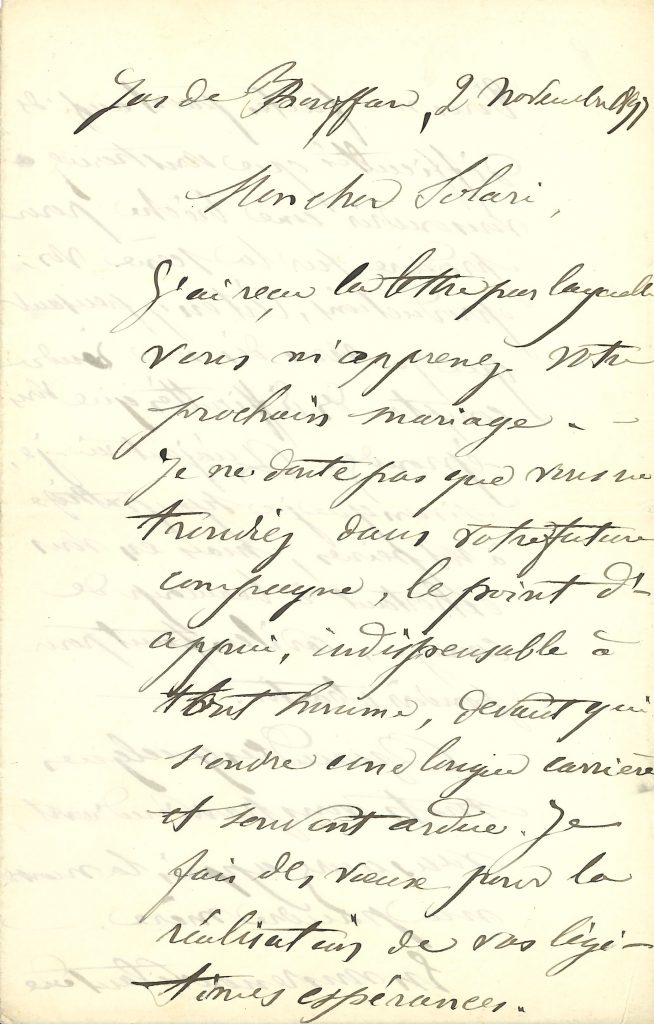 Jas de Bouffan, 2 novembre 1897
Mon cher Solari,
J'ai reçu la lettre par laquelle
vous m'apprenez votre
prochain mariage. –
Je ne doute pas que vous ne
trouviez dans votre future
compagne, le point d'-
appui, indispensable à
tout homme, devant qui
s'ouvre une longue carrière
et souvent ardue. Je
fais des vœux pour la
réalisation de vos légi-
times espérances.